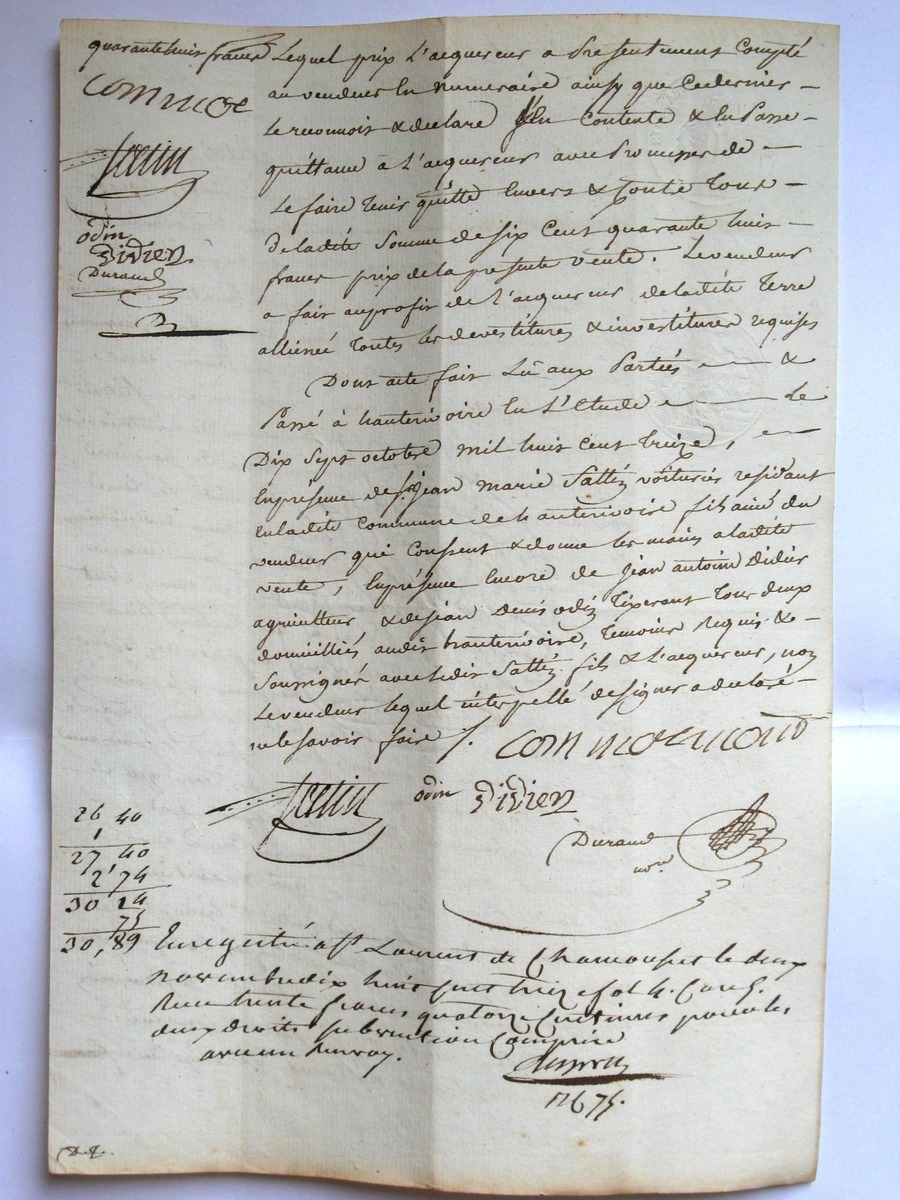 quarante huit francs Lequel prix L'acquereur a presentement Compté
au vendeur En Numeraire ainsy que Cedernier
Le reconnoit & declare S'En Contente & En Passe
quittance a L'acquereur avec Promesse de
Le faire tenir quitte Envers & Contre Tous
De ladite Somme de Six Cent quarante huit
francs prix de la presente vente. Le vendeur
a fait au profit de L'acquereur de ladite Terre
allienée Toutes les devestitures & investitures requises
Dont acte fait Lu aux Parties &
Passé à hauterivoire En L'Etude Le
Dix Sept octobre mil huit Cent Treize,
En présence de Sr Jean marie voiturier residant
En ladite Commune de hauterivoire fils ainé du
vendeur qui Consent & donne les mains a ladite
vente, En présence Encore de Jean antoine Didier
agriculteur & de Jean Denis odin Tixerant Tous deux
domiciliés audit hauterivoire, Temoins Requis &
Soussignés avec ledit fils & L'acquereur, non
Le vendeur lequel interpellé de signer a declaré
ne le savoir faire
odin
Didien
Durand
odin Didien
Durand
nore
26 40
1
27 40
2 74
30 14
75
30,89
Enregistré a St Laurent de Chamousset le deux
novembre dix huit cent treize fol 4. Case
Recu trente francs quatorze Centimes pour les
deux droits subvention Comprise
aucun renvoy.